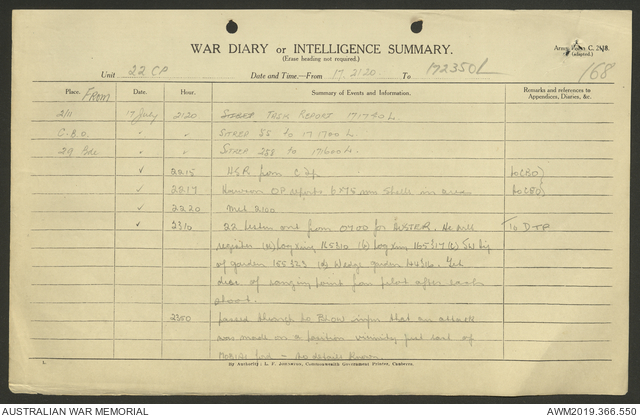 WAR DIARY or INTELLIGENCE SUMMARY.
(Erase heading not required.)
Army Form C. 2118.
(adapted.)
168
Unit 22 CP Date and Time.—From 17.2120. To 172350L
Place. Date. Hour. Summary of Events and Information. Remarks and references to Appendices, Diaries, &c.
FROM
2/11 17 July 2120 TASK REPORT 171740L.
C.B.O. " " SITREP 55 to 171700L
29 Bde " " SITREP 258 to 171600L
" 2215 from C Tp to CBO)
" 2217 OP reports 6 x 75 mm shells in area to CBO)
" 2220 Met 2100
" 2310 22 listen out from 0700 for AUSTER. He will To D-TP
register (a) Log Xing (b) Log Xing (c) SW
of garden 155323 (d) Wedge garden Get
disc of ranging point from pilot after each
shoot.
2350 passed through to that an attack
was made on a position vicinity just east of
- No details known.
1.
By Authority: L. F. Johnston, Commonwealth Government Printer, Canberra.
AUSTRALIAN WAR MEMORIAL
AWM2019.366.550